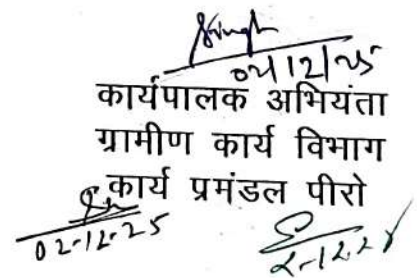 02/12/25
कार्यपालक अभियंता
ग्रामीण कार्य विभाग
कार्य प्रमंडल पीरो
02-12-25